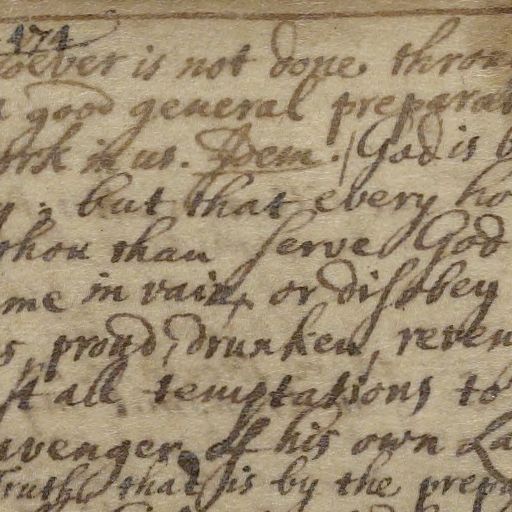 474
soever is not done throu
good general preparat
ork in us. Idem. God is b
y; but that every ho
thou than serve God
me in vain, or disobey
s, proud, drunken, reven
st all temptations to
avenger of his own La
Truth, that is by the prepa